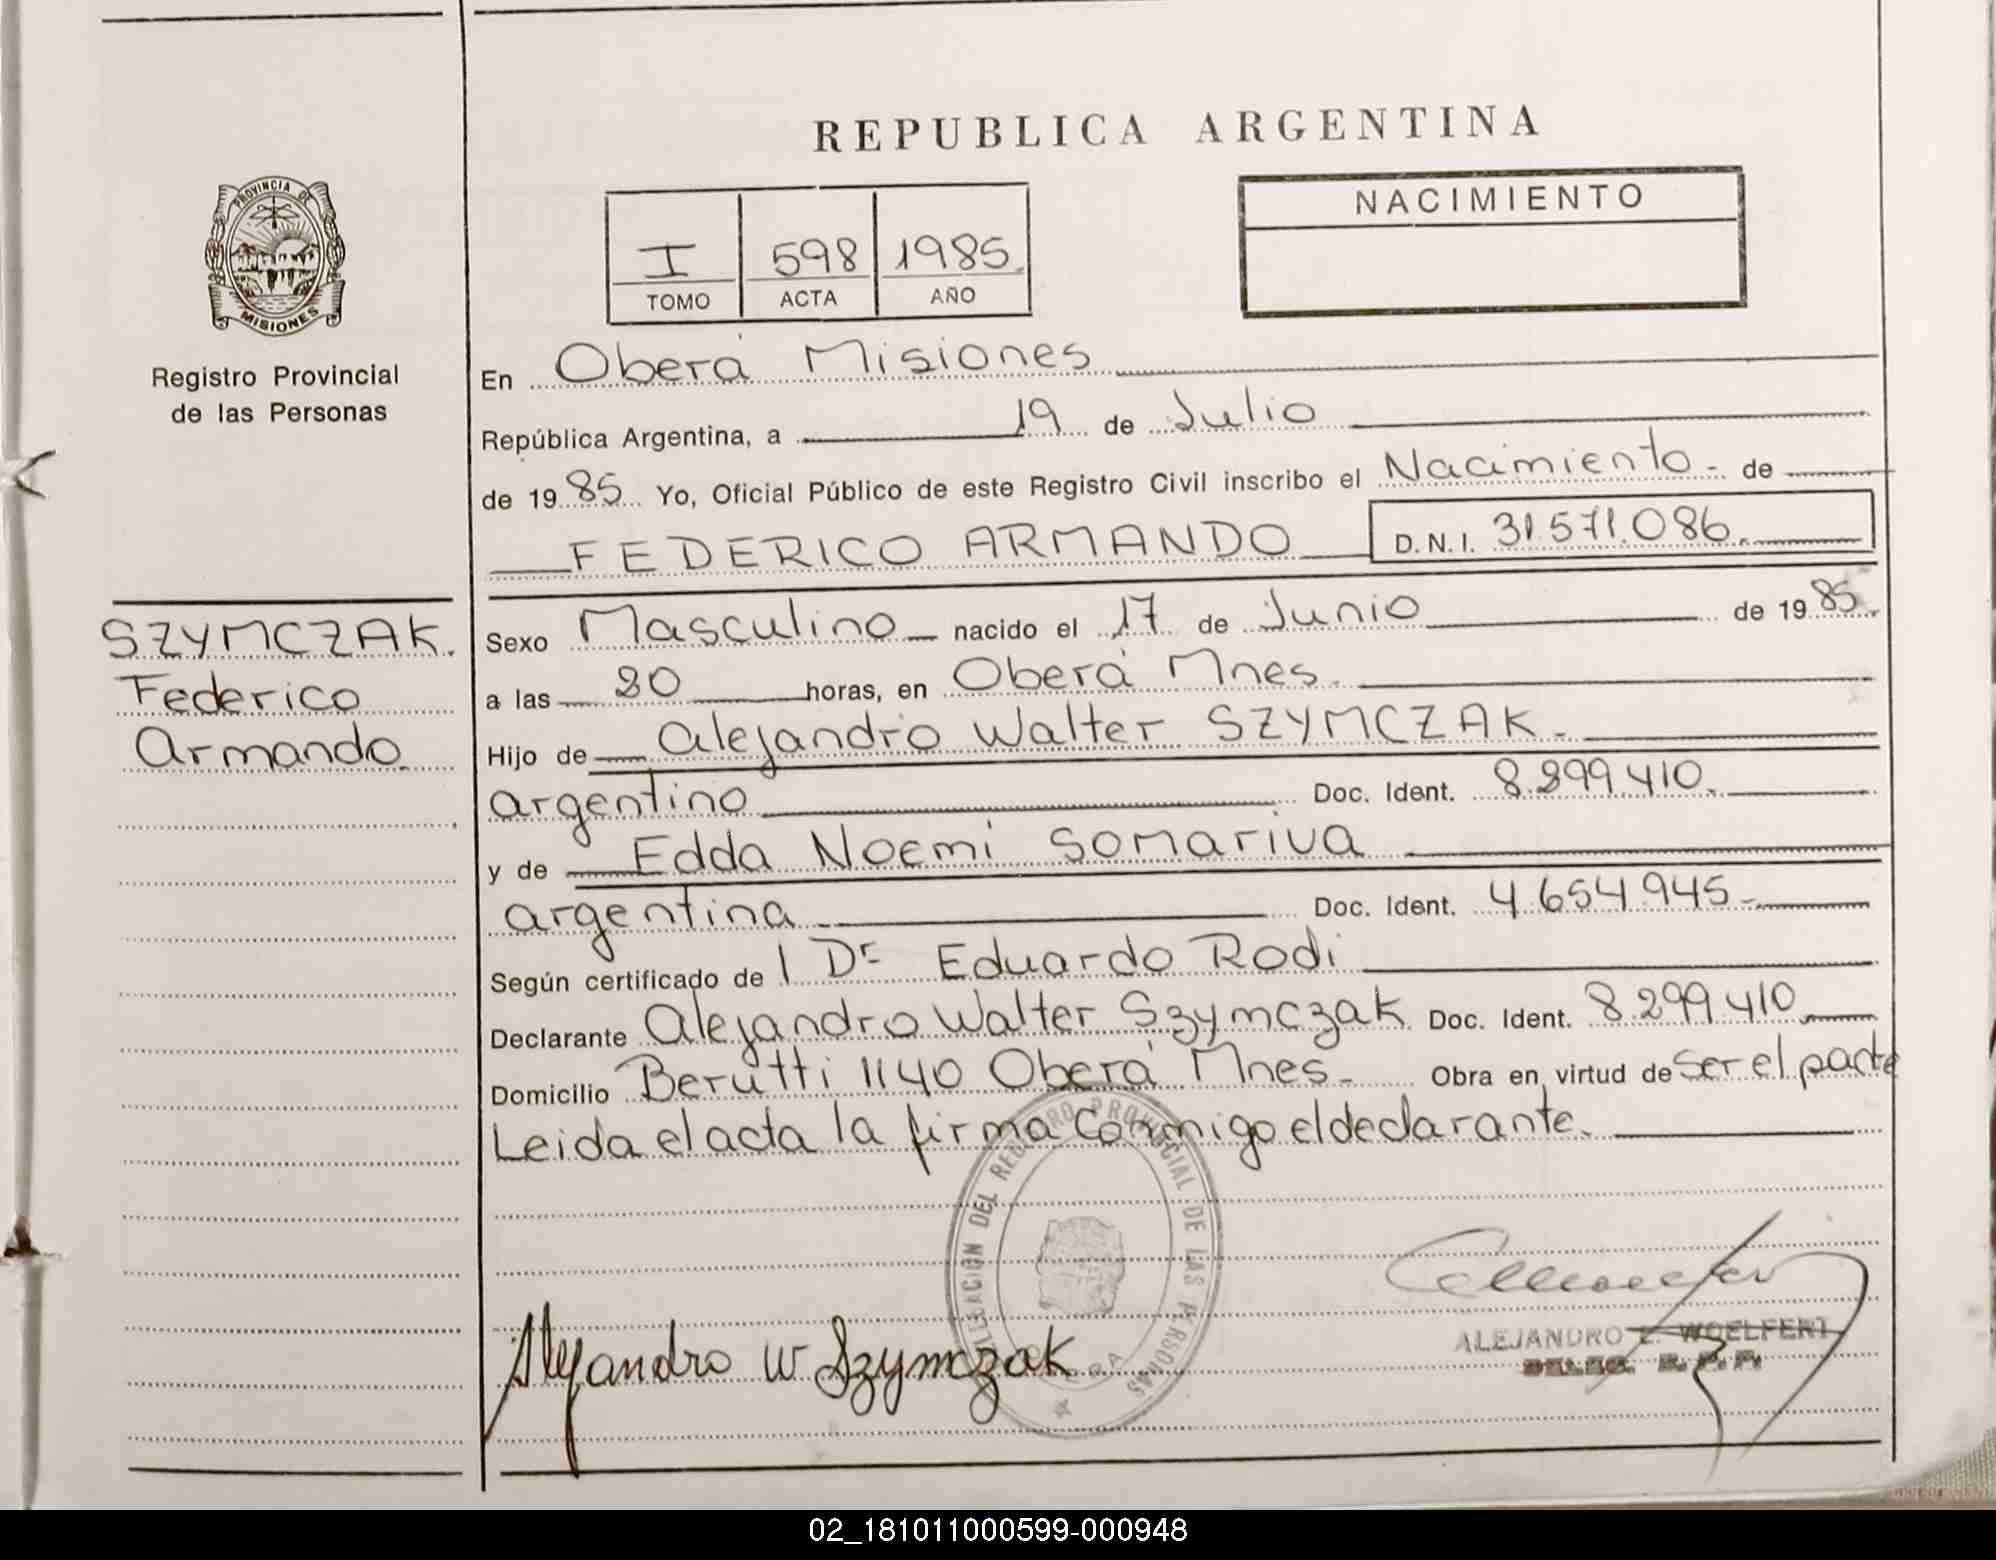 REPUBLICA ARGENTINA
PROVINCIA DE
MISIONES
Registro Provincial
de las Personas
I 598 1985
TOMO ACTA AÑO
NACIMIENTO
En Oberá Misiones
República Argentina, a 19 de Julio
de 1985 Yo, Oficial Público de este Registro Civil inscribo el Nacimiento - de
FEDERICO ARMANDO D.N.I. 31.571.086.
SZYMCZAK.
Federico
Armando.
Sexo Masculino nacido el 17 de Junio de 1985.
a las 20 horas, en Oberá Mnes.
Hijo de Alejandro Walter SZYMCZAK.
argentino Doc. Ident. 8.299.410.
y de Edda Noemi SOMARIVA
argentina Doc. Ident. 4.654.945.-
Según certificado de l Dr Eduardo Rodi
Declarante Alejandro Walter Szymczak Doc. Ident. 8.299.410
Domicilio Berutti 1140 Oberá Mnes. Obra en virtud de ser el
Leida el acta la firma conmigo el declarante.
DEL REGISTRO PROVINCIAL DE LAS PERSONAS
Alejandro W Szymczak
ALEJANDRO E. WOELFERT
R. P. P.
02_181011000599-000948